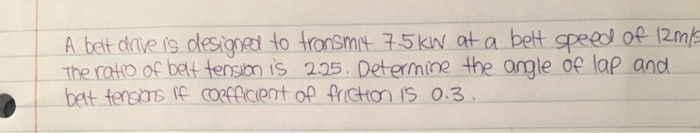 A belt drive is designed to transmit 7.5kW at a belt speed of 12m/s
The ratio of belt tension is 2.25. Determine the angle of lap and
belt tensions if coefficient of friction is 0.3.